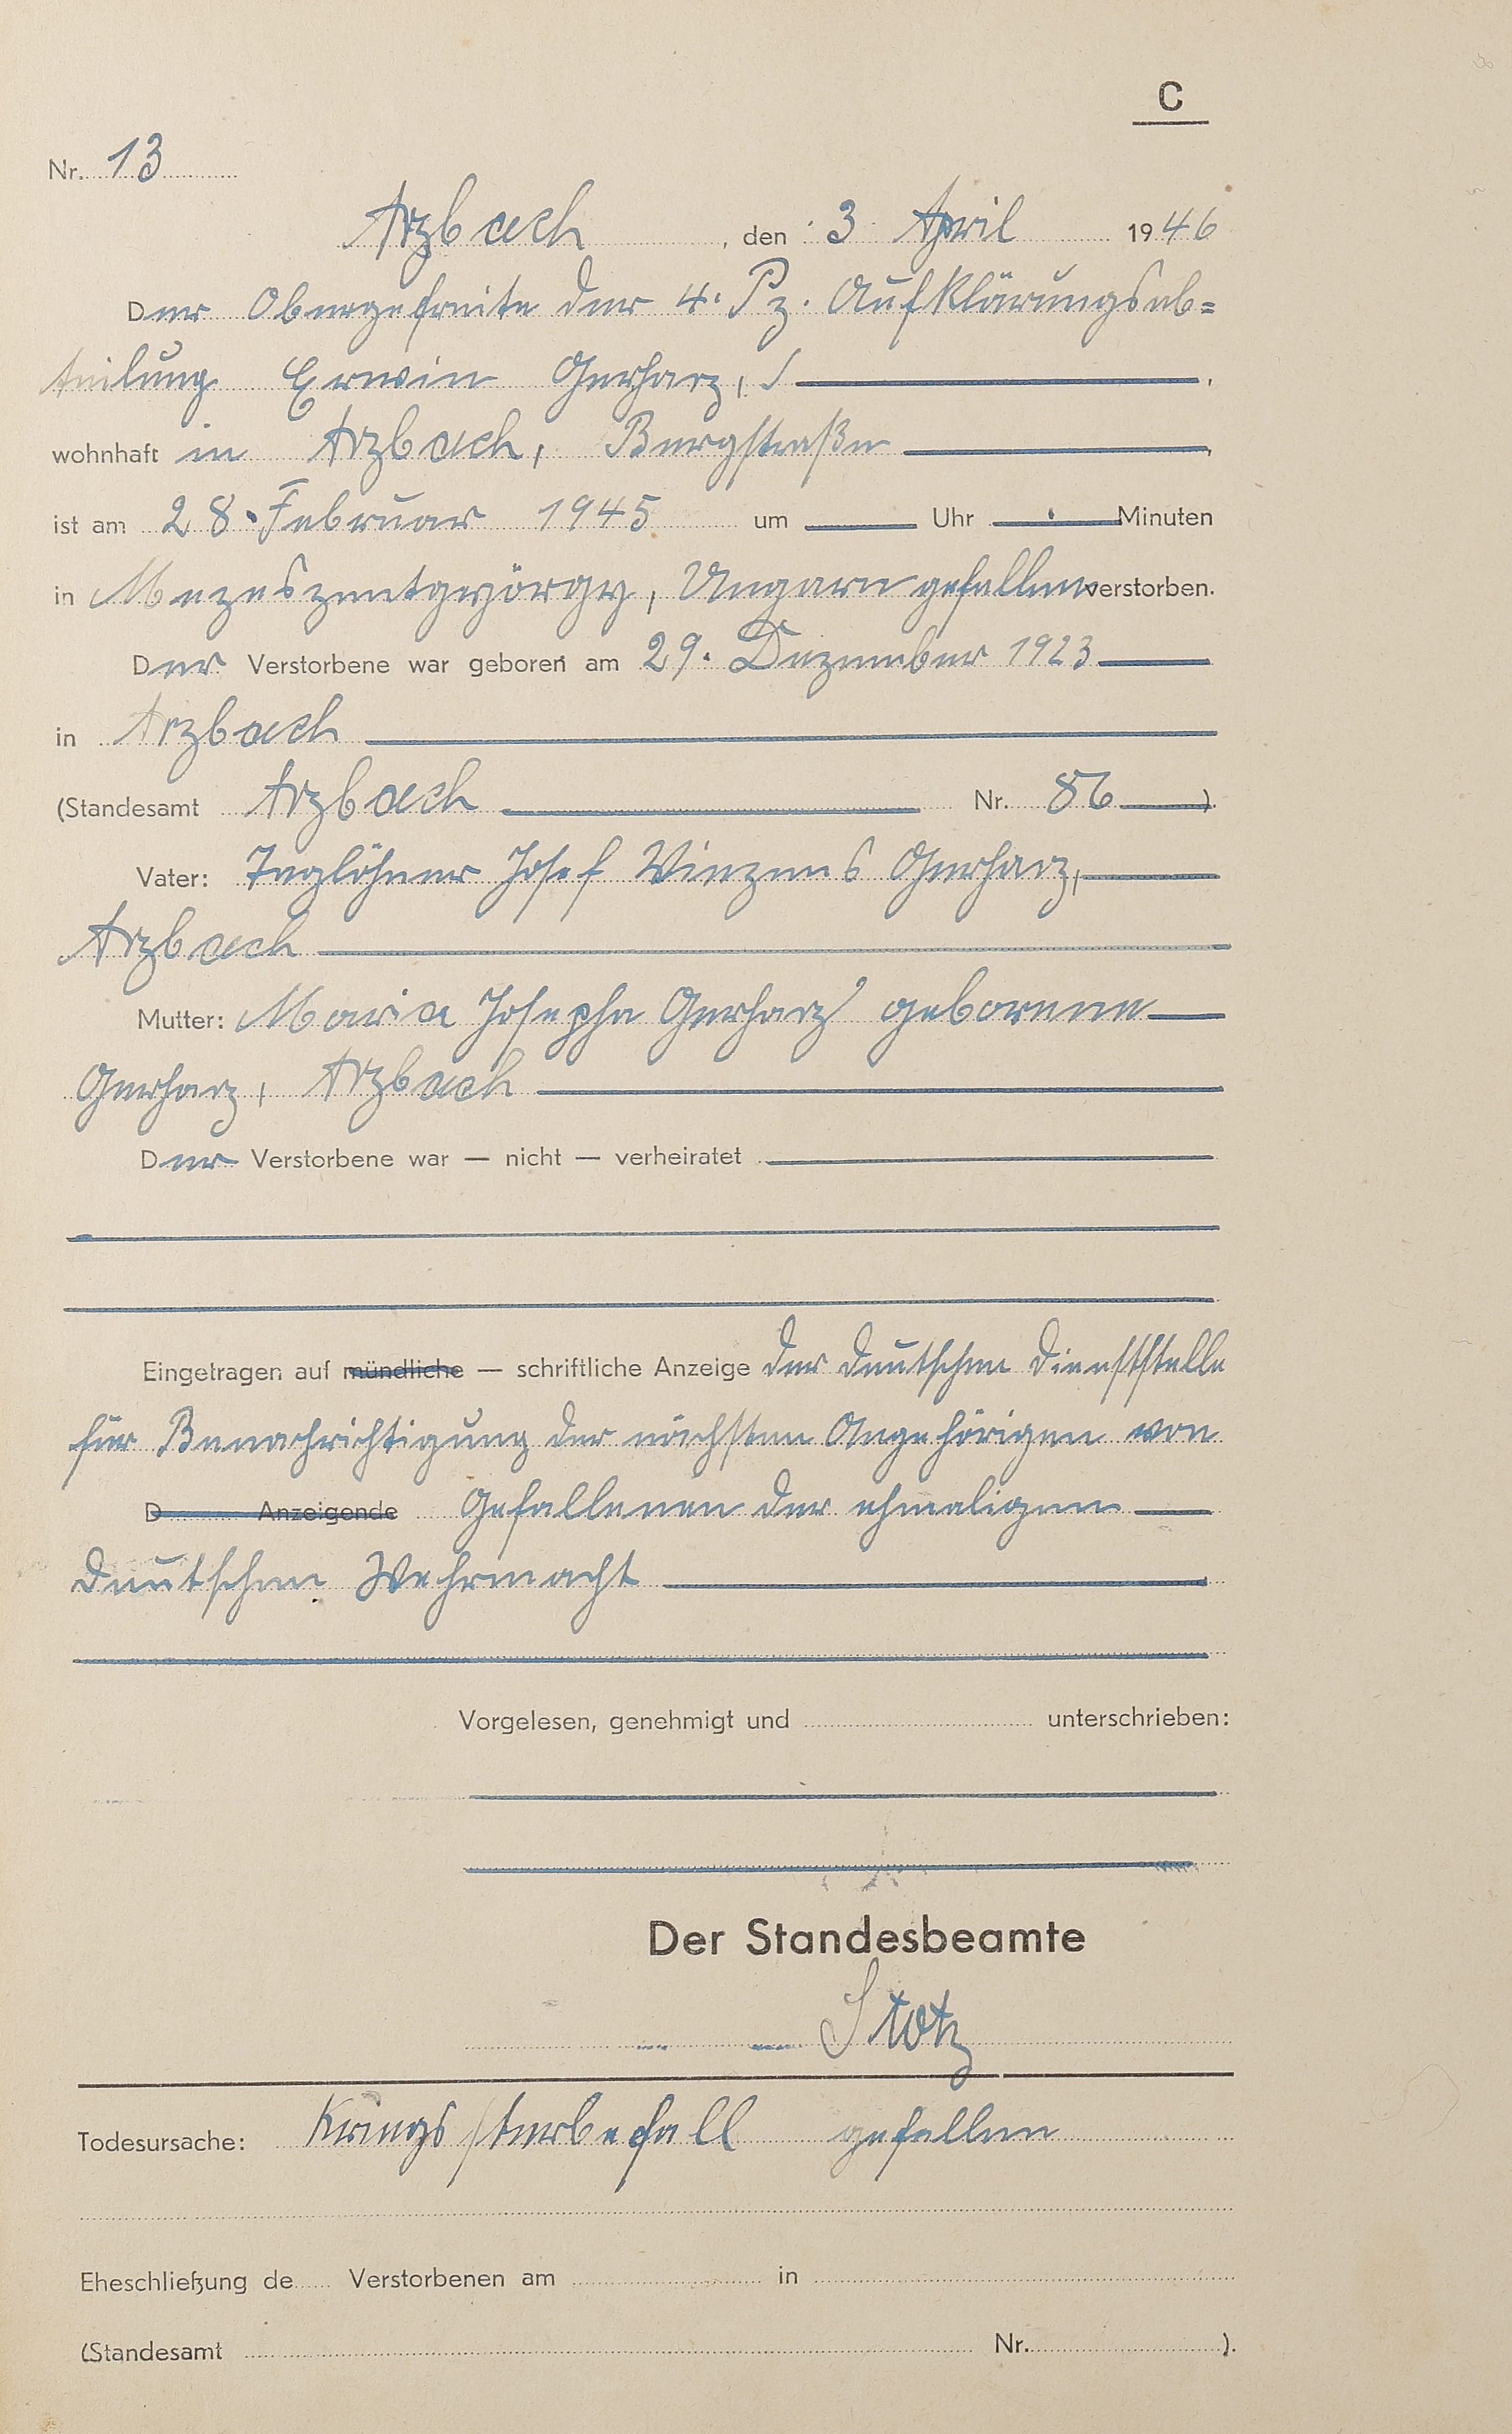 C
Nr. 13
Arzbach, den 3. April 1946
Der Obergefreite der 4. Pz. Aufklärungsab=
teilung Erwin Gerharz,
wohnhaft in Arzbach, Bergstraße
ist am 28. Februar 1945 um Uhr Minuten
in Mezeszentgyörgy, Ungarn gefallen verstorben.
Der Verstorbene war geboren am 29. Dezember 1923
in Arzbach
(Standesamt Arzbach Nr. 86)
Vater: Taglöhner Josef Vinzens Gerharz,
Arzbach
Mutter: Maria Josepha Gerharz geborene
Gerharz, Arzbach
Der Verstorbene war — nicht — verheiratet
Eingetragen auf mündliche — schriftliche Anzeige der deutschen Dienststelle
für Benachrichtigung der nächsten Angehörigen von
D Anzeigende Gefallenen der ehmaligen
deutschen Wehrmacht
Vorgelesen, genehmigt und unterschrieben:
Der Standesbeamte
Stotz
Todesursache: Kriegssterbefall gefallen
Eheschließung de Verstorbenen am in
(Standesamt Nr. ).